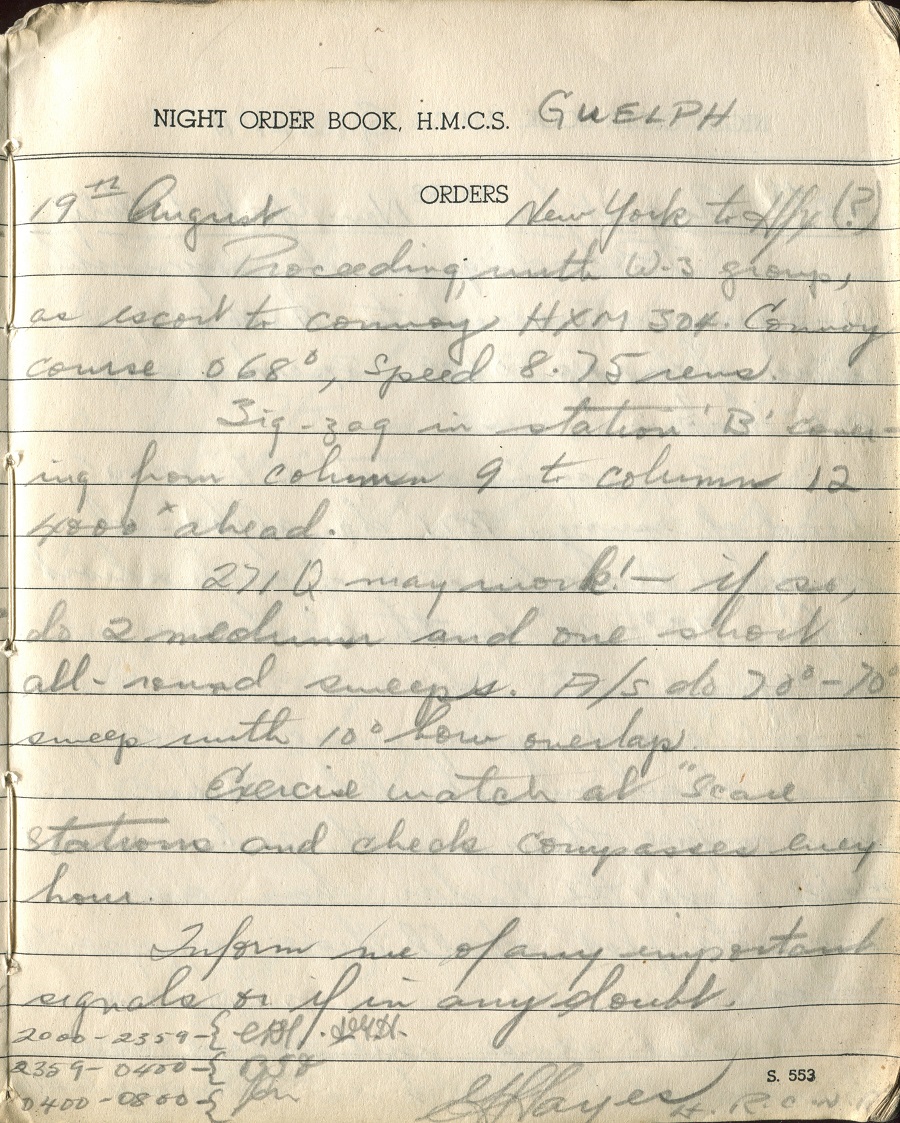 NIGHT ORDER BOOK, H.M.C.S. GUELPH
ORDERS
19th August New York to Hfx (?)
Proceeding, with W-3 group,
as escort to convoy HXM 304. Convoy
course 068°, speed 8.75 revs.
Zig-zag in station 'B' cover-
ing from column 9 to column 12
4000x ahead.
271Q may work! - if so,
do 2 medium and one short
all-round sweeps. A/S do 70°-70°
sweep with 10° bow overlap.
Exercise watch at "Scare
stations and check compasses every
hour.
Inform me of any important
signals or if in any doubt.
2000-2359-{
2359-0400-{
0400-0800-{
Hayes R.C.N.
S. 553